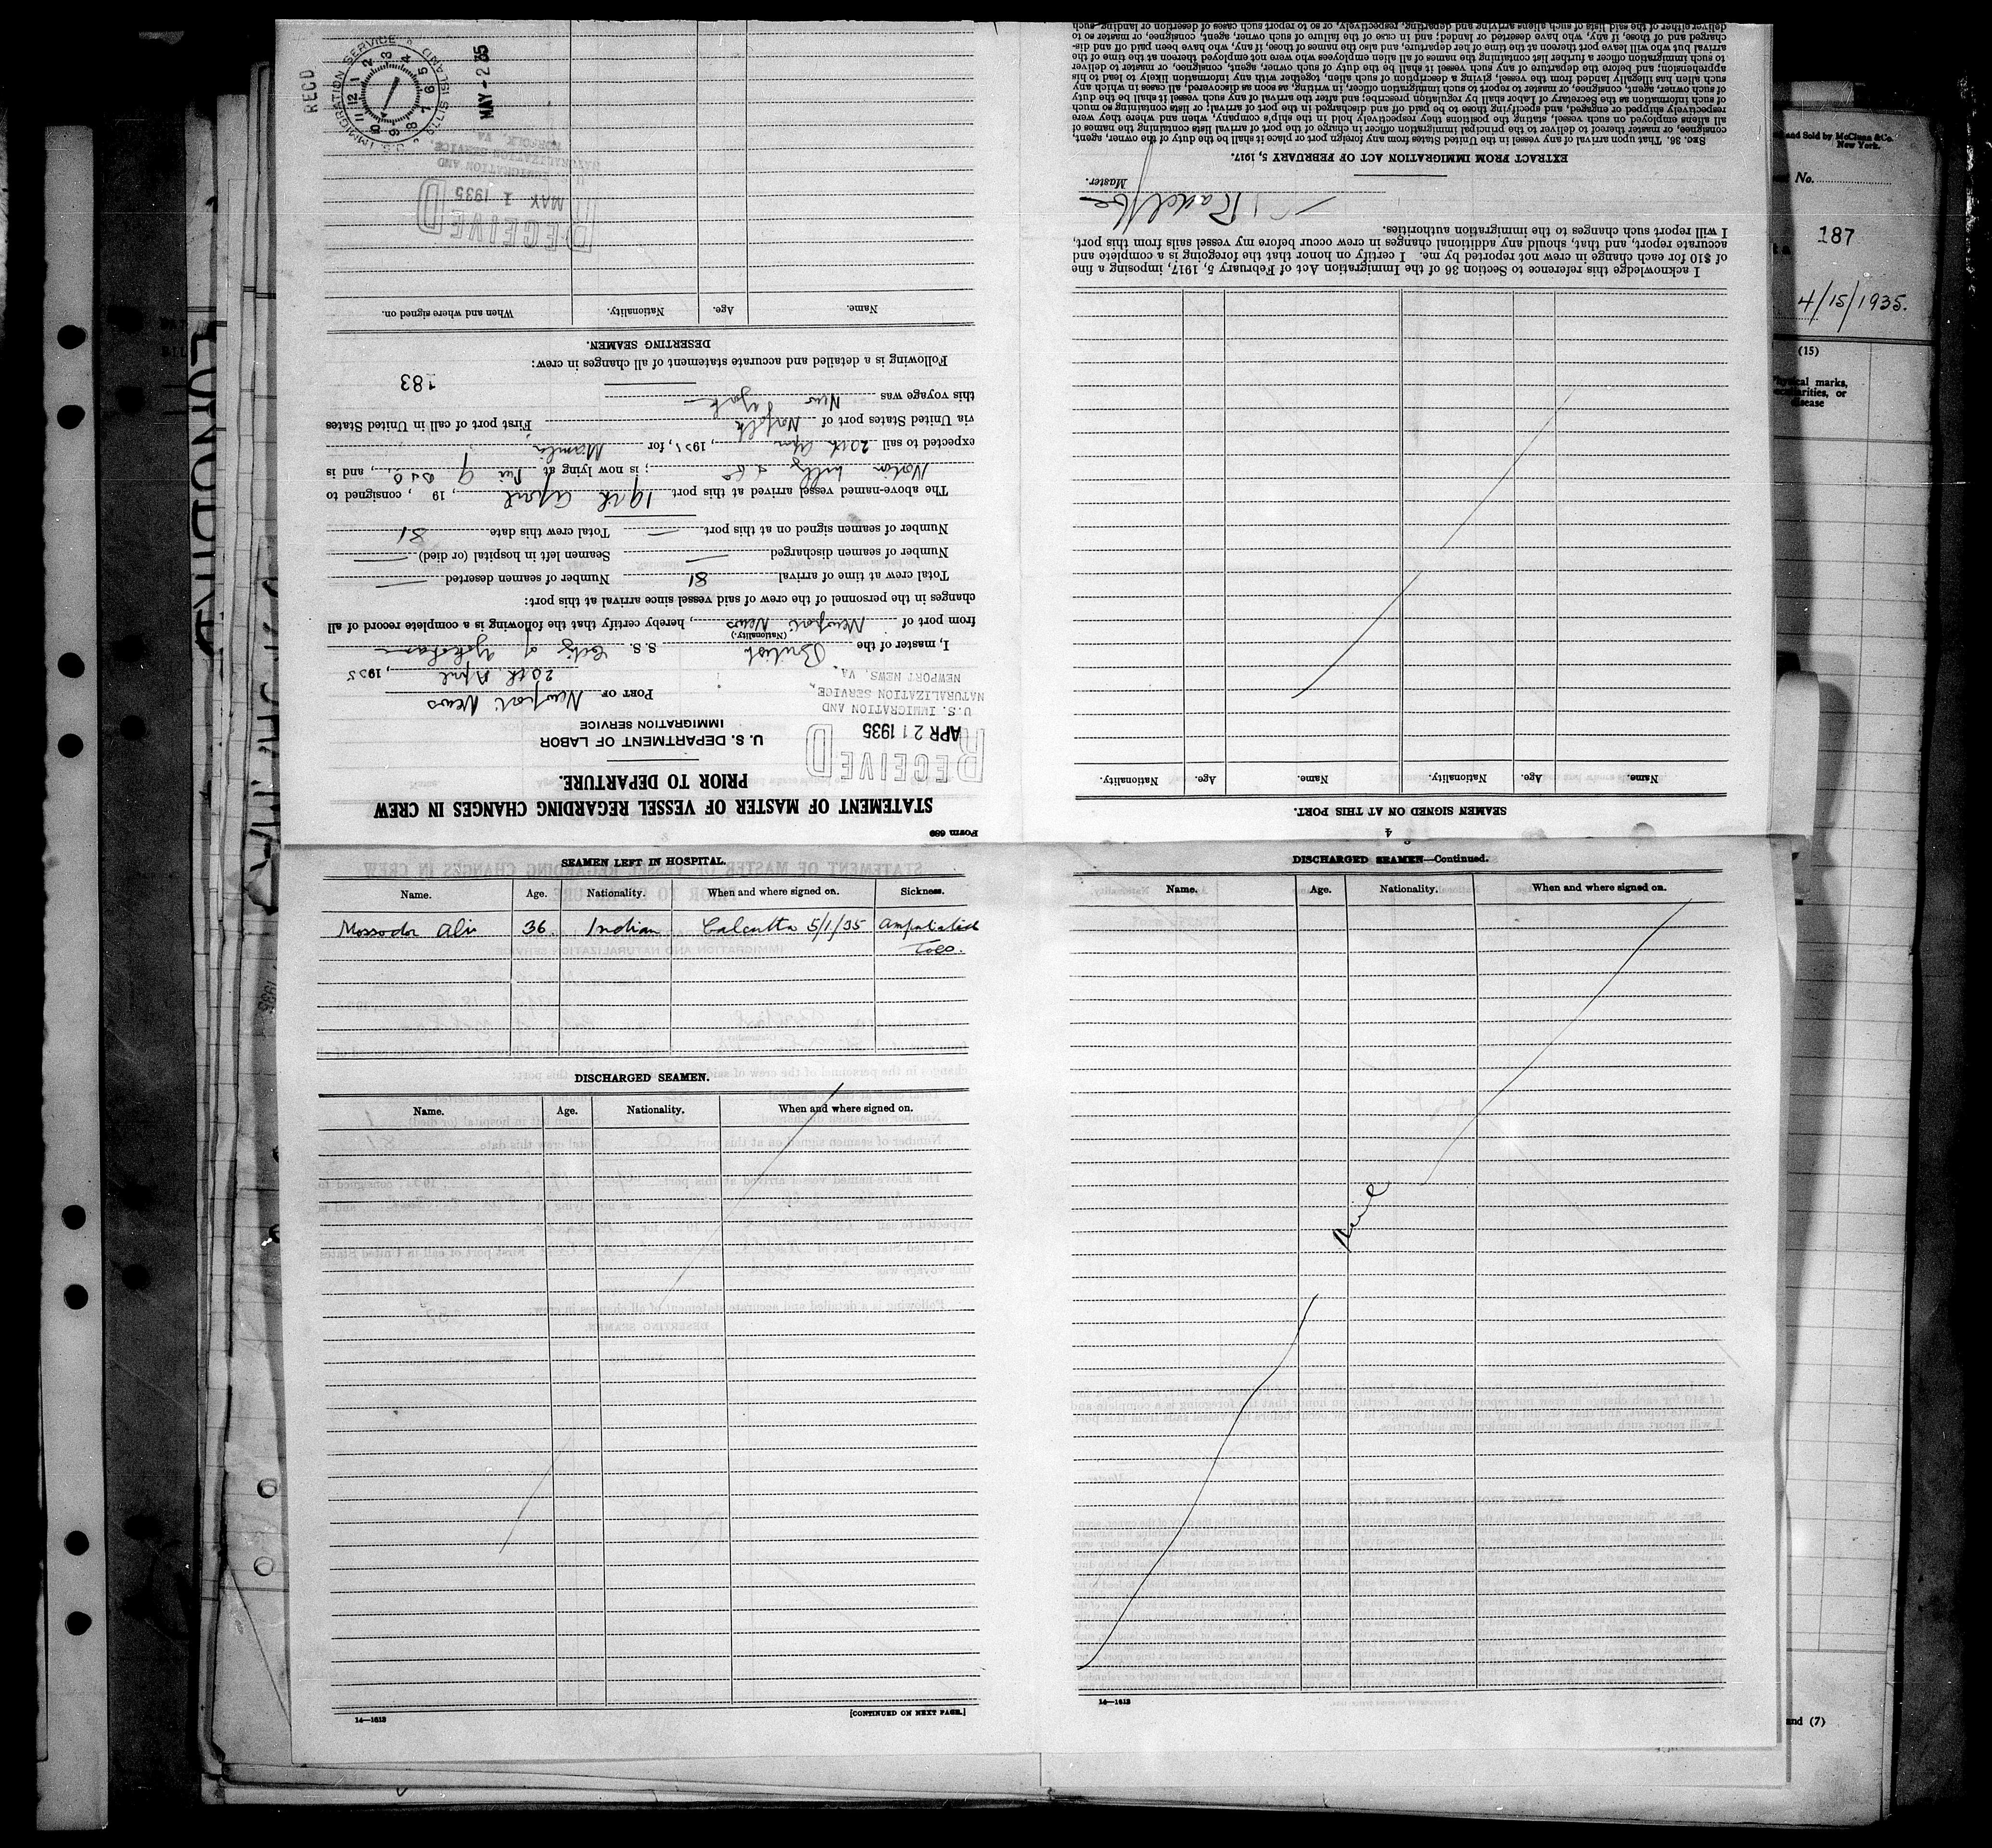 Form 689
STATEMENT OF MASTER OF VESSEL REGARDING CHANGES IN CREW
PRIOR TO DEPARTURE.
RECEIVED
APR 21 1935
U.S. IMMIGRATION AND
NATURALIZATION SERVICE
NEWPORT NEWS, VA.
U. S. DEPARTMENT OF LABOR
IMMIGRATION SERVICE
PORT OF Newport News
20th April, 1935
I, master of the British S. S. City of Yokohama
(Nationality.)
from port of Newport News, hereby certify that the following is a complete record of all
changes in the personnel of the crew of said vessel since arrival at this port:
Total crew at time of arrival 81 Number of seamen deserted —
Number of seamen discharged — Seamen left in hospital (or died) —
Number of seamen signed on at this port — Total crew this date. 81
The above-named vessel arrived at this port 19th April, 19 , consigned to
Norton Lilly & Co; is now lying at Pier 9 C&O, and is
expected to sail 20th Apr, 1935, for Manila
via United States port of Norfolk First port of call in United States
this voyage was New York
183
Following is a detailed and accurate statement of all changes in crew:
DESERTING SEAMEN.
Name. Age. Nationality. When and where signed on.
RECEIVED
MAY 1 1935
U. S. IMMIGRATION AND
NATURALIZATION SERVICE,
NORFOLK, VA.
REC'D
U.S. IMMIGRATION SERVICE
MAY -2 35
4
SEAMEN SIGNED ON AT THIS PORT.
Name. Age. Nationality. Name. Age. Nationality.
I acknowledge this reference to Section 36 of the Immigration Act of February 5, 1917, imposing a fine
of $10 for each change in crew not reported by me. I certify on honor that the foregoing is a complete and
accurate report, and that, should any additional changes in crew occur before my vessel sails from this port,
I will report such changes to the immigration authorities.
Master.
EXTRACT FROM IMMIGRATION ACT OF FEBRUARY 5, 1917.
SEC. 36. That upon arrival of any vessel in the United States from any foreign port or place it shall be the duty of the owner, agent,
consignee, or master thereof to deliver to the principal immigration officer in charge of the port of arrival lists containing the names of
all aliens employed on such vessel, stating the positions they respectively hold in the ship's company, when and where they were
respectively shipped or engaged, and specifying those to be paid off and discharged in the port of arrival; or lists containing so much
of such information as the Secretary of Labor shall by regulation prescribe; and after the arrival of any such vessel it shall be the duty
of such owner, agent, consignee, or master to report to such immigration officer, in writing, as soon as discovered, all cases in which any
such alien has illegally landed from the vessel, giving a description of such alien, together with any information likely to lead to his
apprehension; and before the departure of any such vessel it shall be the duty of such owner, agent, consignee, or master to deliver
to such immigration officer a further list containing the names of all alien employees who were not employed thereon at the time of the
arrival but who will leave port thereon at the time of her departure, and also the names of those, if any, who have been paid off and dis-
charged and of those, if any, who have deserted or landed; and in case of the failure of such owner, agent, consignee, or master so to
deliver either of the said lists of such aliens arriving and departing, respectively, or so to report such cases of desertion or landing, such
SEAMEN LEFT IN HOSPITAL.
Name. Age. Nationality. When and where signed on. Sickness.
Mossodor Ali 36. Indian Calcutta 5/1/35 Amputated
Toes.
DISCHARGED SEAMEN.
Name. Age. Nationality. When and where signed on.
14—1613
[CONTINUED ON NEXT PAGE.]
DISCHARGED SEAMEN—Continued.
Name. Age. Nationality. When and where signed on.
14—1613
and Sold by McClunn & Co.
New York.
No.
187
4/15/1935.
(15)
Physical marks,
peculiarities, or
disease
and (7)